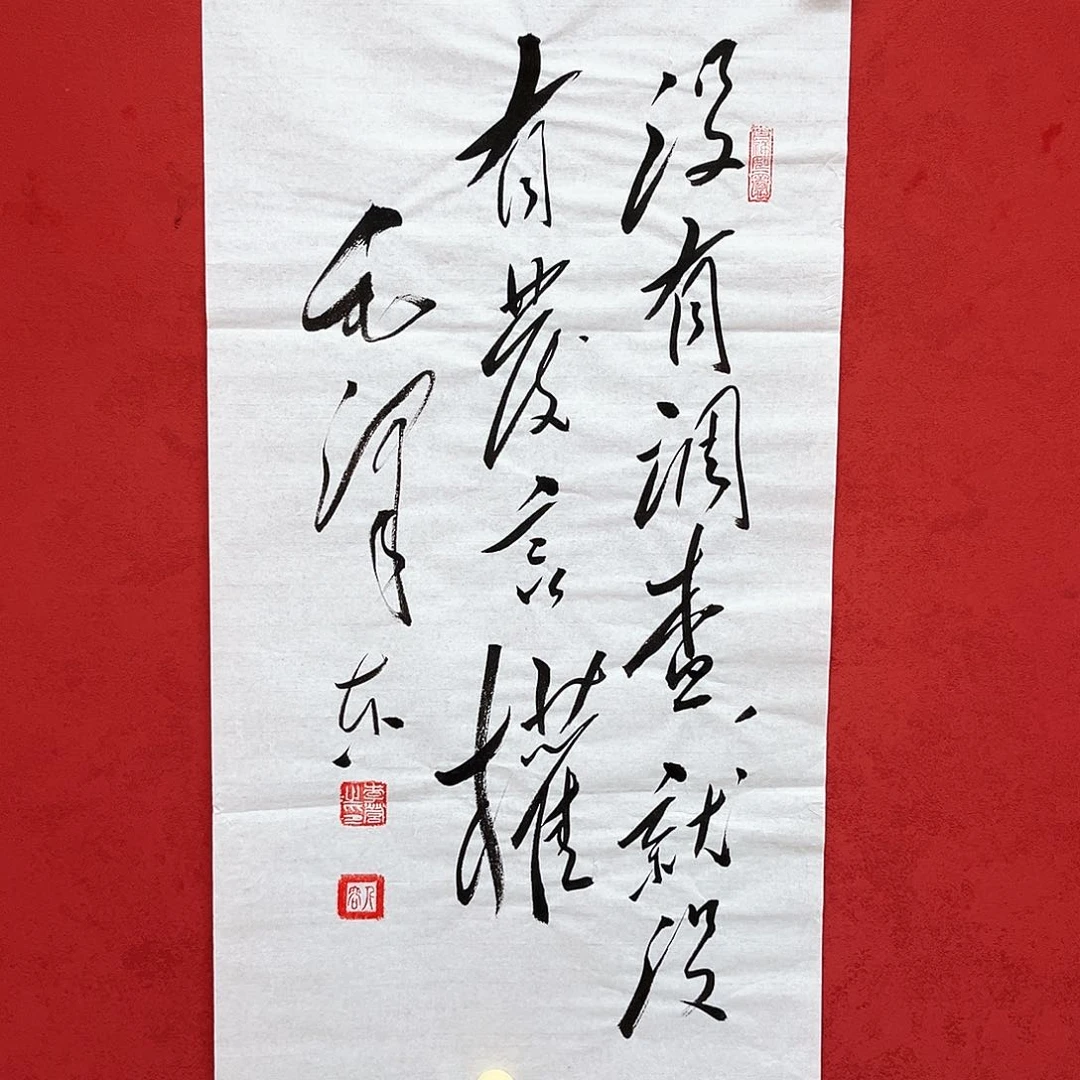 没有调查、就没
有發言權
毛泽东